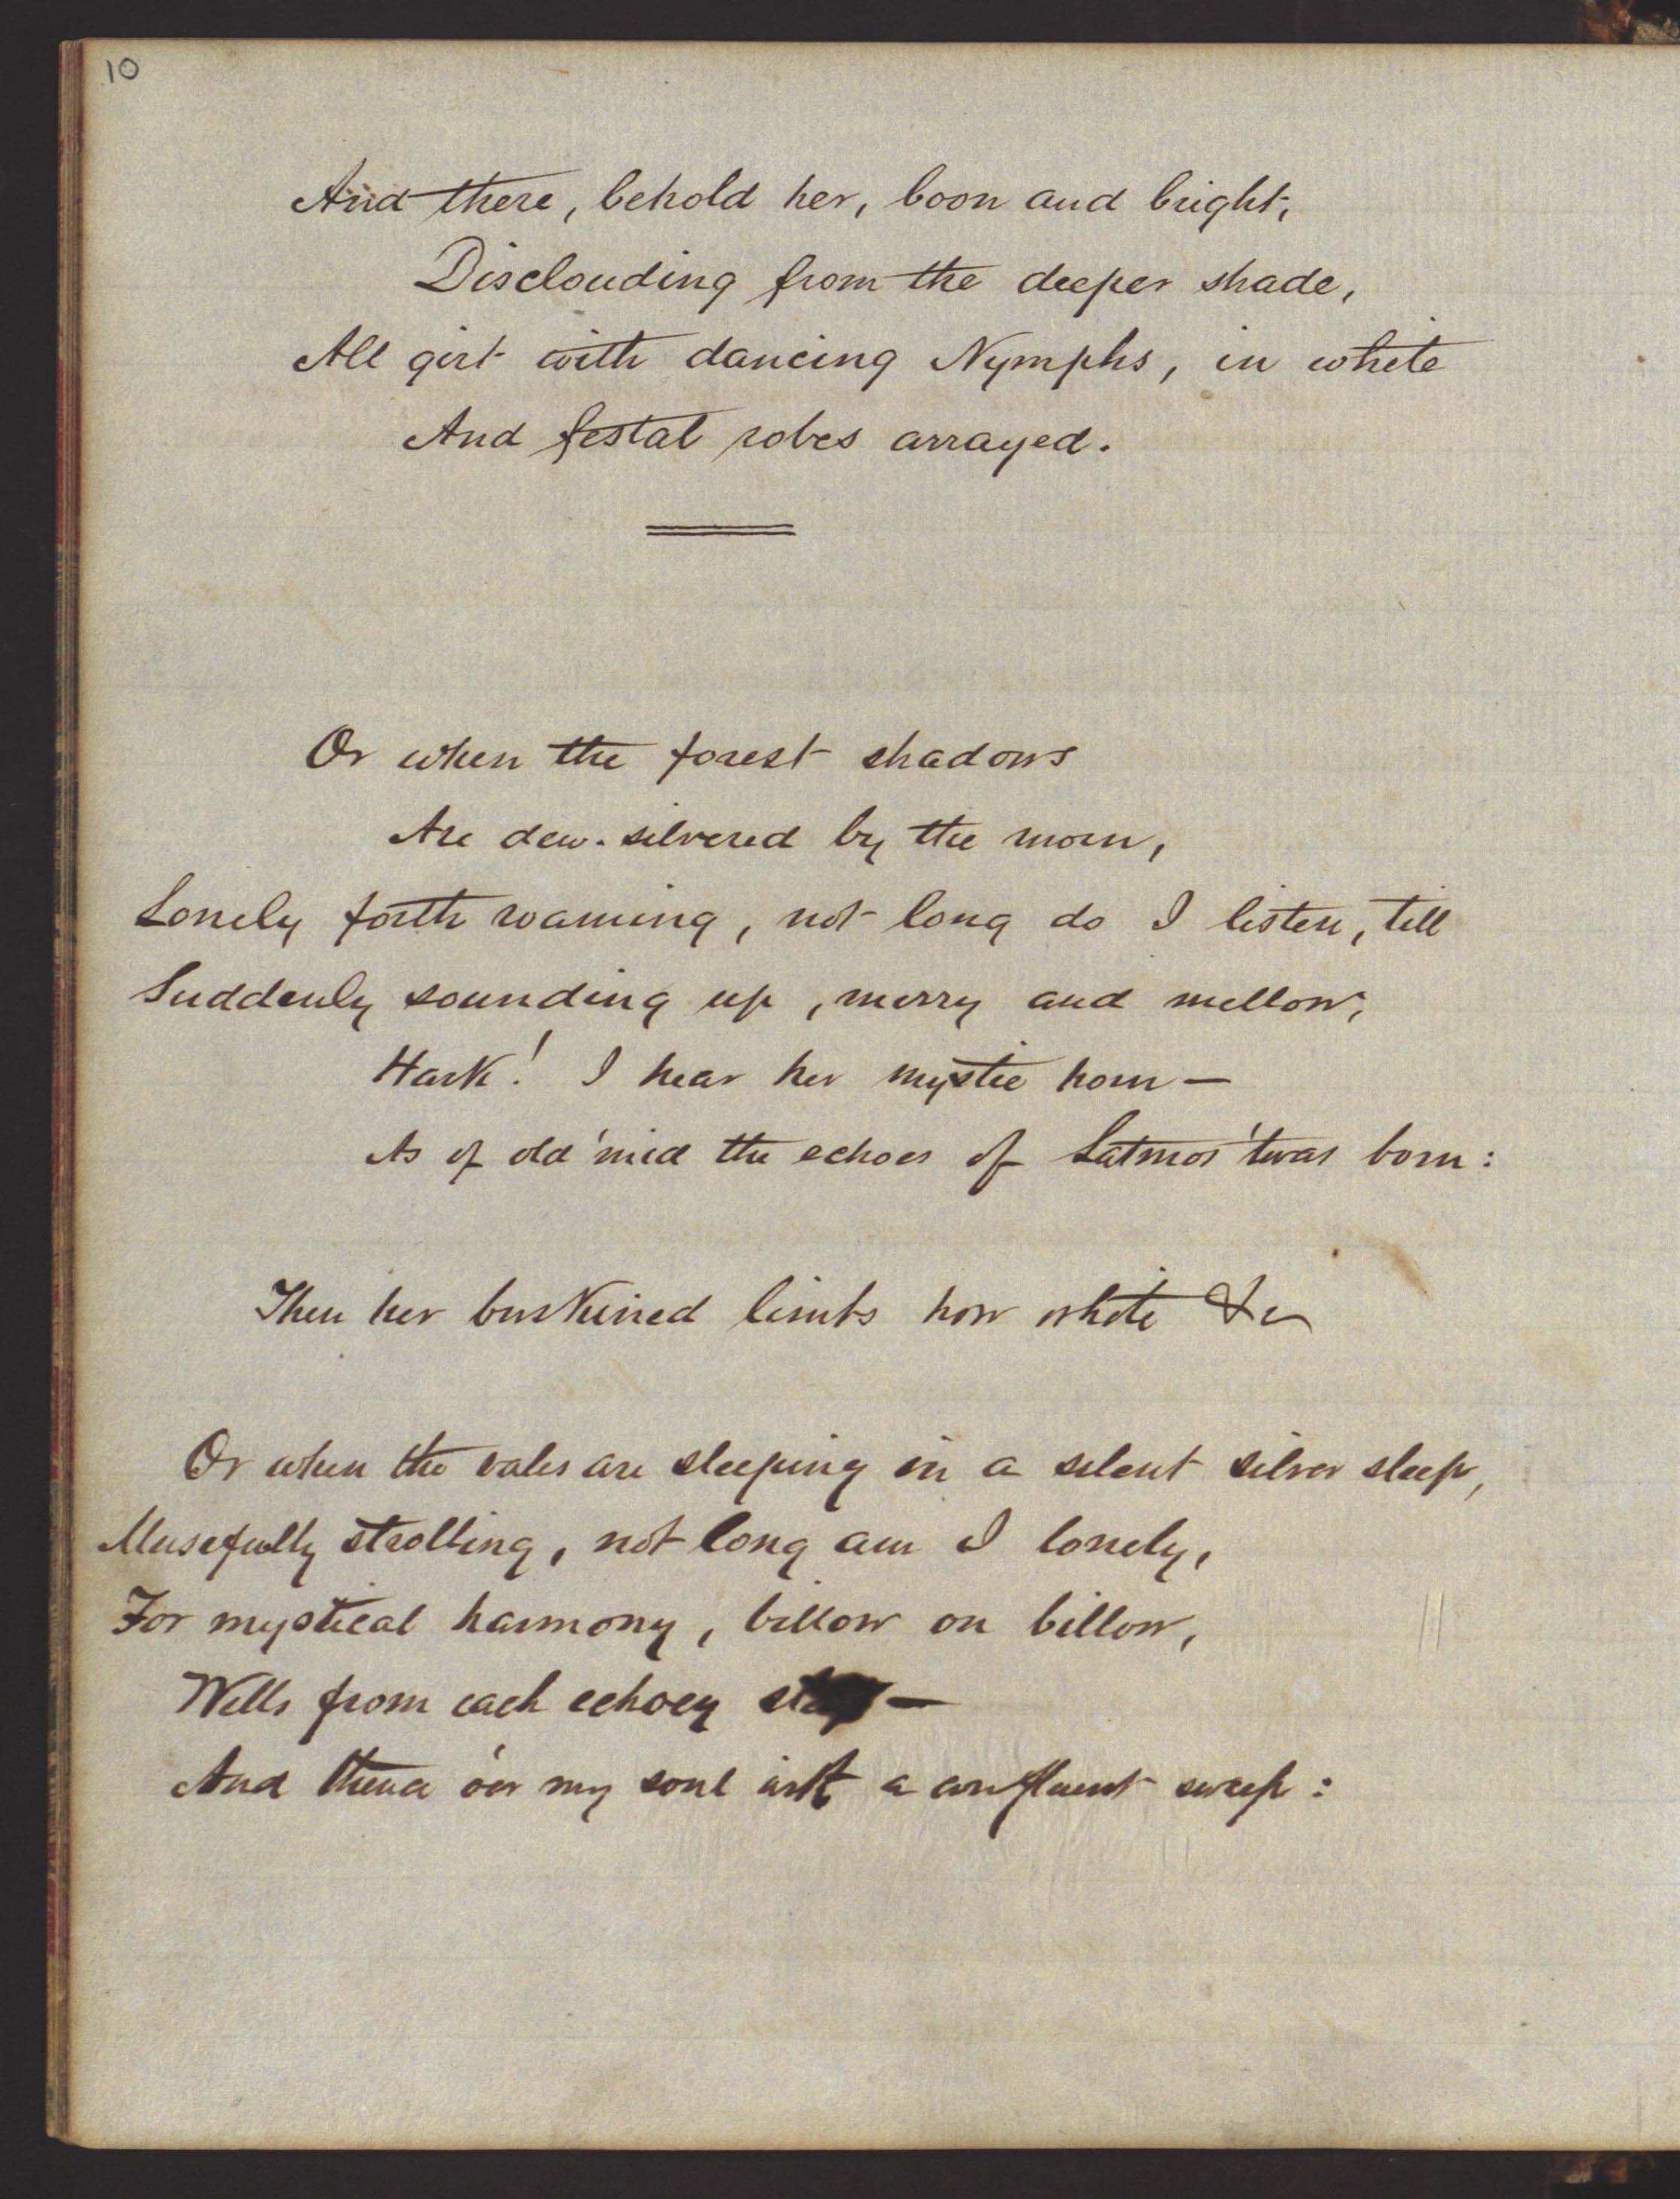 10
And there, behold her, boon and bright,
Disclouding from the deeper shade,
All girt with dancing Nymphs, in white
And festal robes arrayed.
Or when the forest shadows
Are dew-silvered by the morn,
Lonely forth roaming, not long do I listen, till
Suddenly sounding up, merry and mellow,
Hark! I hear her mystic horn—
As of old 'mid the echoes of Latmos 'twas born:
Then her buskined limbs how white &c
Or when the vales are sleeping in a silent silver sleep,
Musefully strolling, not long am I lonely,
For mystical harmony, billow on billow,
Wells from each echoey —
And thence o'er my soul with a confluent sweep: